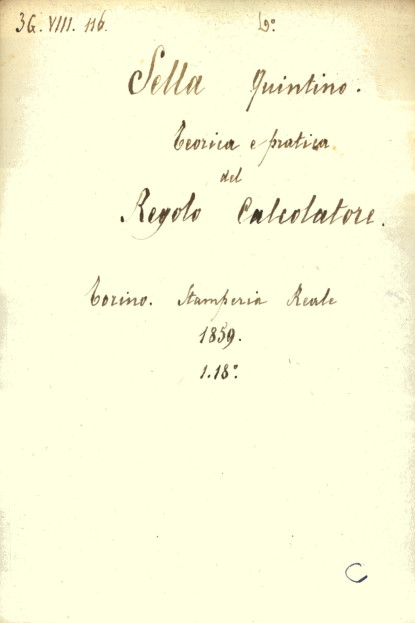 3G. VIII. 116.
Sella Quintino.
Teorica e pratica
del
Regolo Calcolatore.
Torino. Stamperia Reale
1859.
1.18°.
C